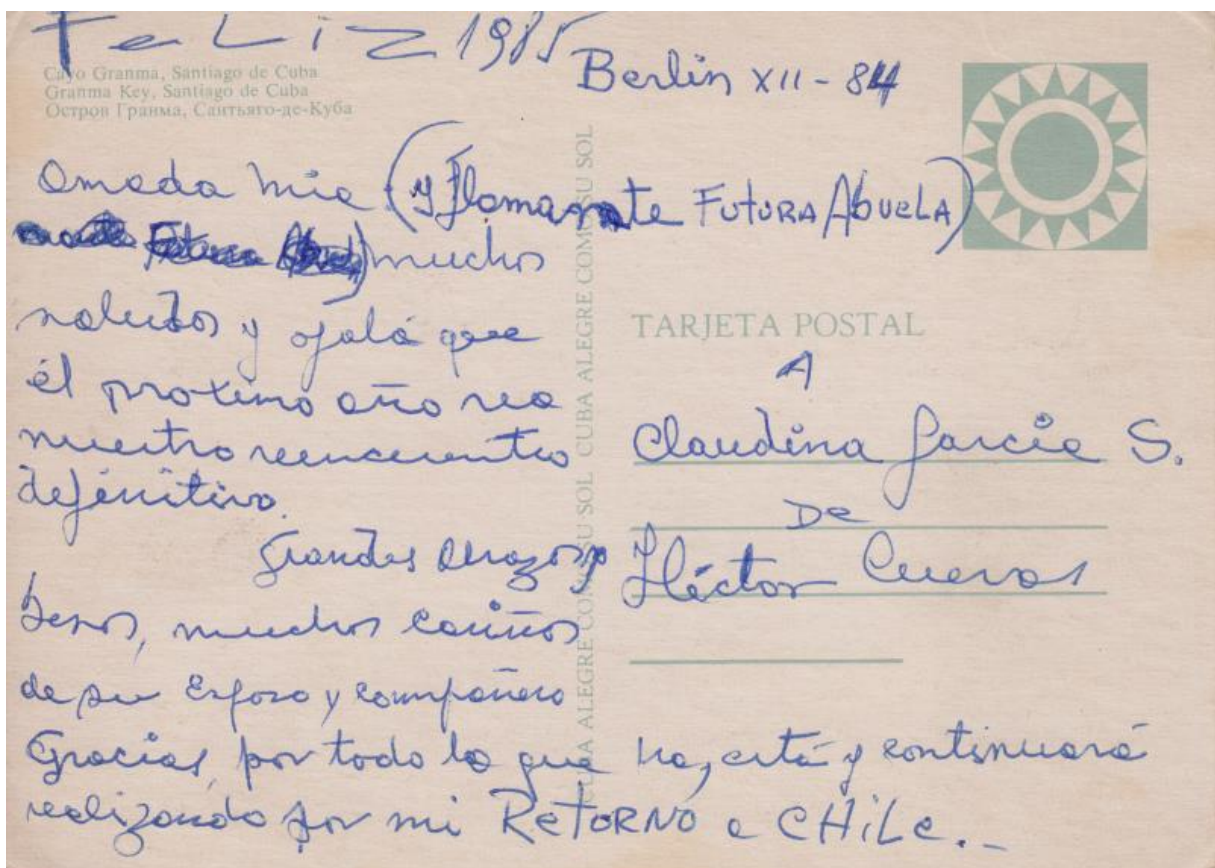 Feliz 1985
Cayo Granma, Santiago de Cuba
Granma Key, Santiago de Cuba
Остров Гранма, Сантьяго-де-Куба
Berlin XII - 84
Amada mia (y Flamante FUTURA AbueLA)
muchos
saludos y ojalá que
él proximo año sea
nuestro reencuentro
definitivo.
Grandes abrazos y
besos, muchos cariños
de su Esposo y compañero
Gracias, por todo lo que ha, está y continuará
realizando por mi ReTORNO a CHiLe._
CUBA ALEGRE COMO SU SOL CUBA ALEGRE COMO SU SOL
TARJETA POSTAL
A
Claudina Garcia S.
De
Héctor Cuevas